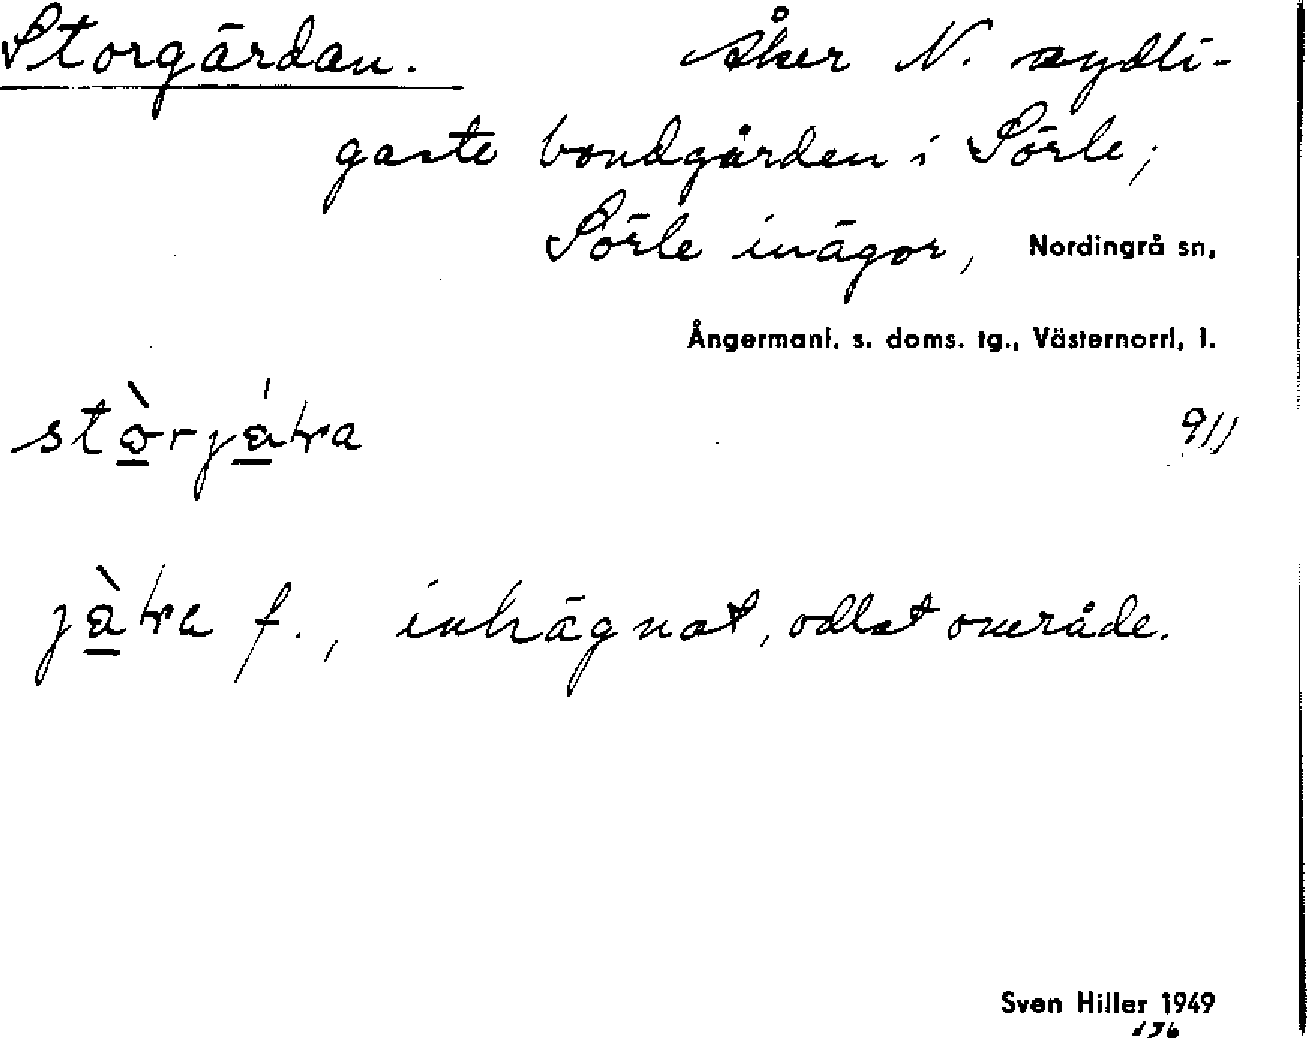 Storgärdan. Åker N. sydli-
gaste bondgården i Sörle;
Sörle inägor, Nordingrå sn,
Ångermanl. s. doms. tg., Västernorrl. l.
911
f., inhägnat, odlat område.
Sven Hiller 1949